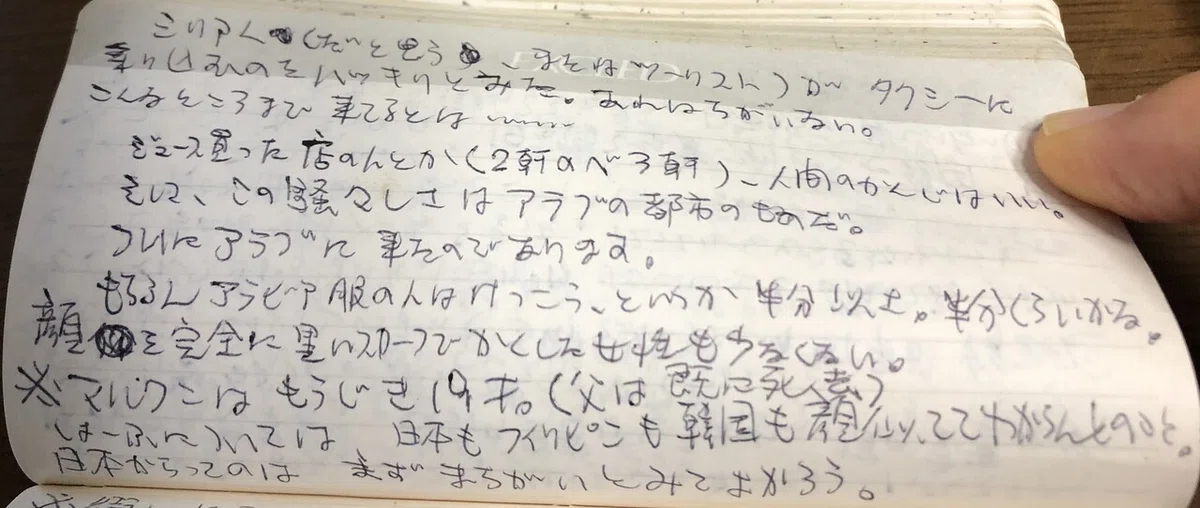 ミリアム(だと思う、またはツーリスト)が タクシーに
乗り込むのをハッキリとみた。あれはちがいない。
こんなところまで 来てるとは……
ジュース買った 店の人とか(2軒のべ3軒)、人間のかんじはいい。
そして、この騒々しさは アラブの都市のものだ。
ついにアラブに 来たのであります。
もちろん アラビア服の人はけっこう、というか 半分以上。半分くらいかな。
顔を完全に黒いスカーフでかくした女性も少なくない。
※マルワンは もうじき19才。(父は 既に死去)
はーふについては 日本もフィリピンも韓国も顔似ててわからんとのこと。
日本からってのは まずまちがいとみてよかろう。